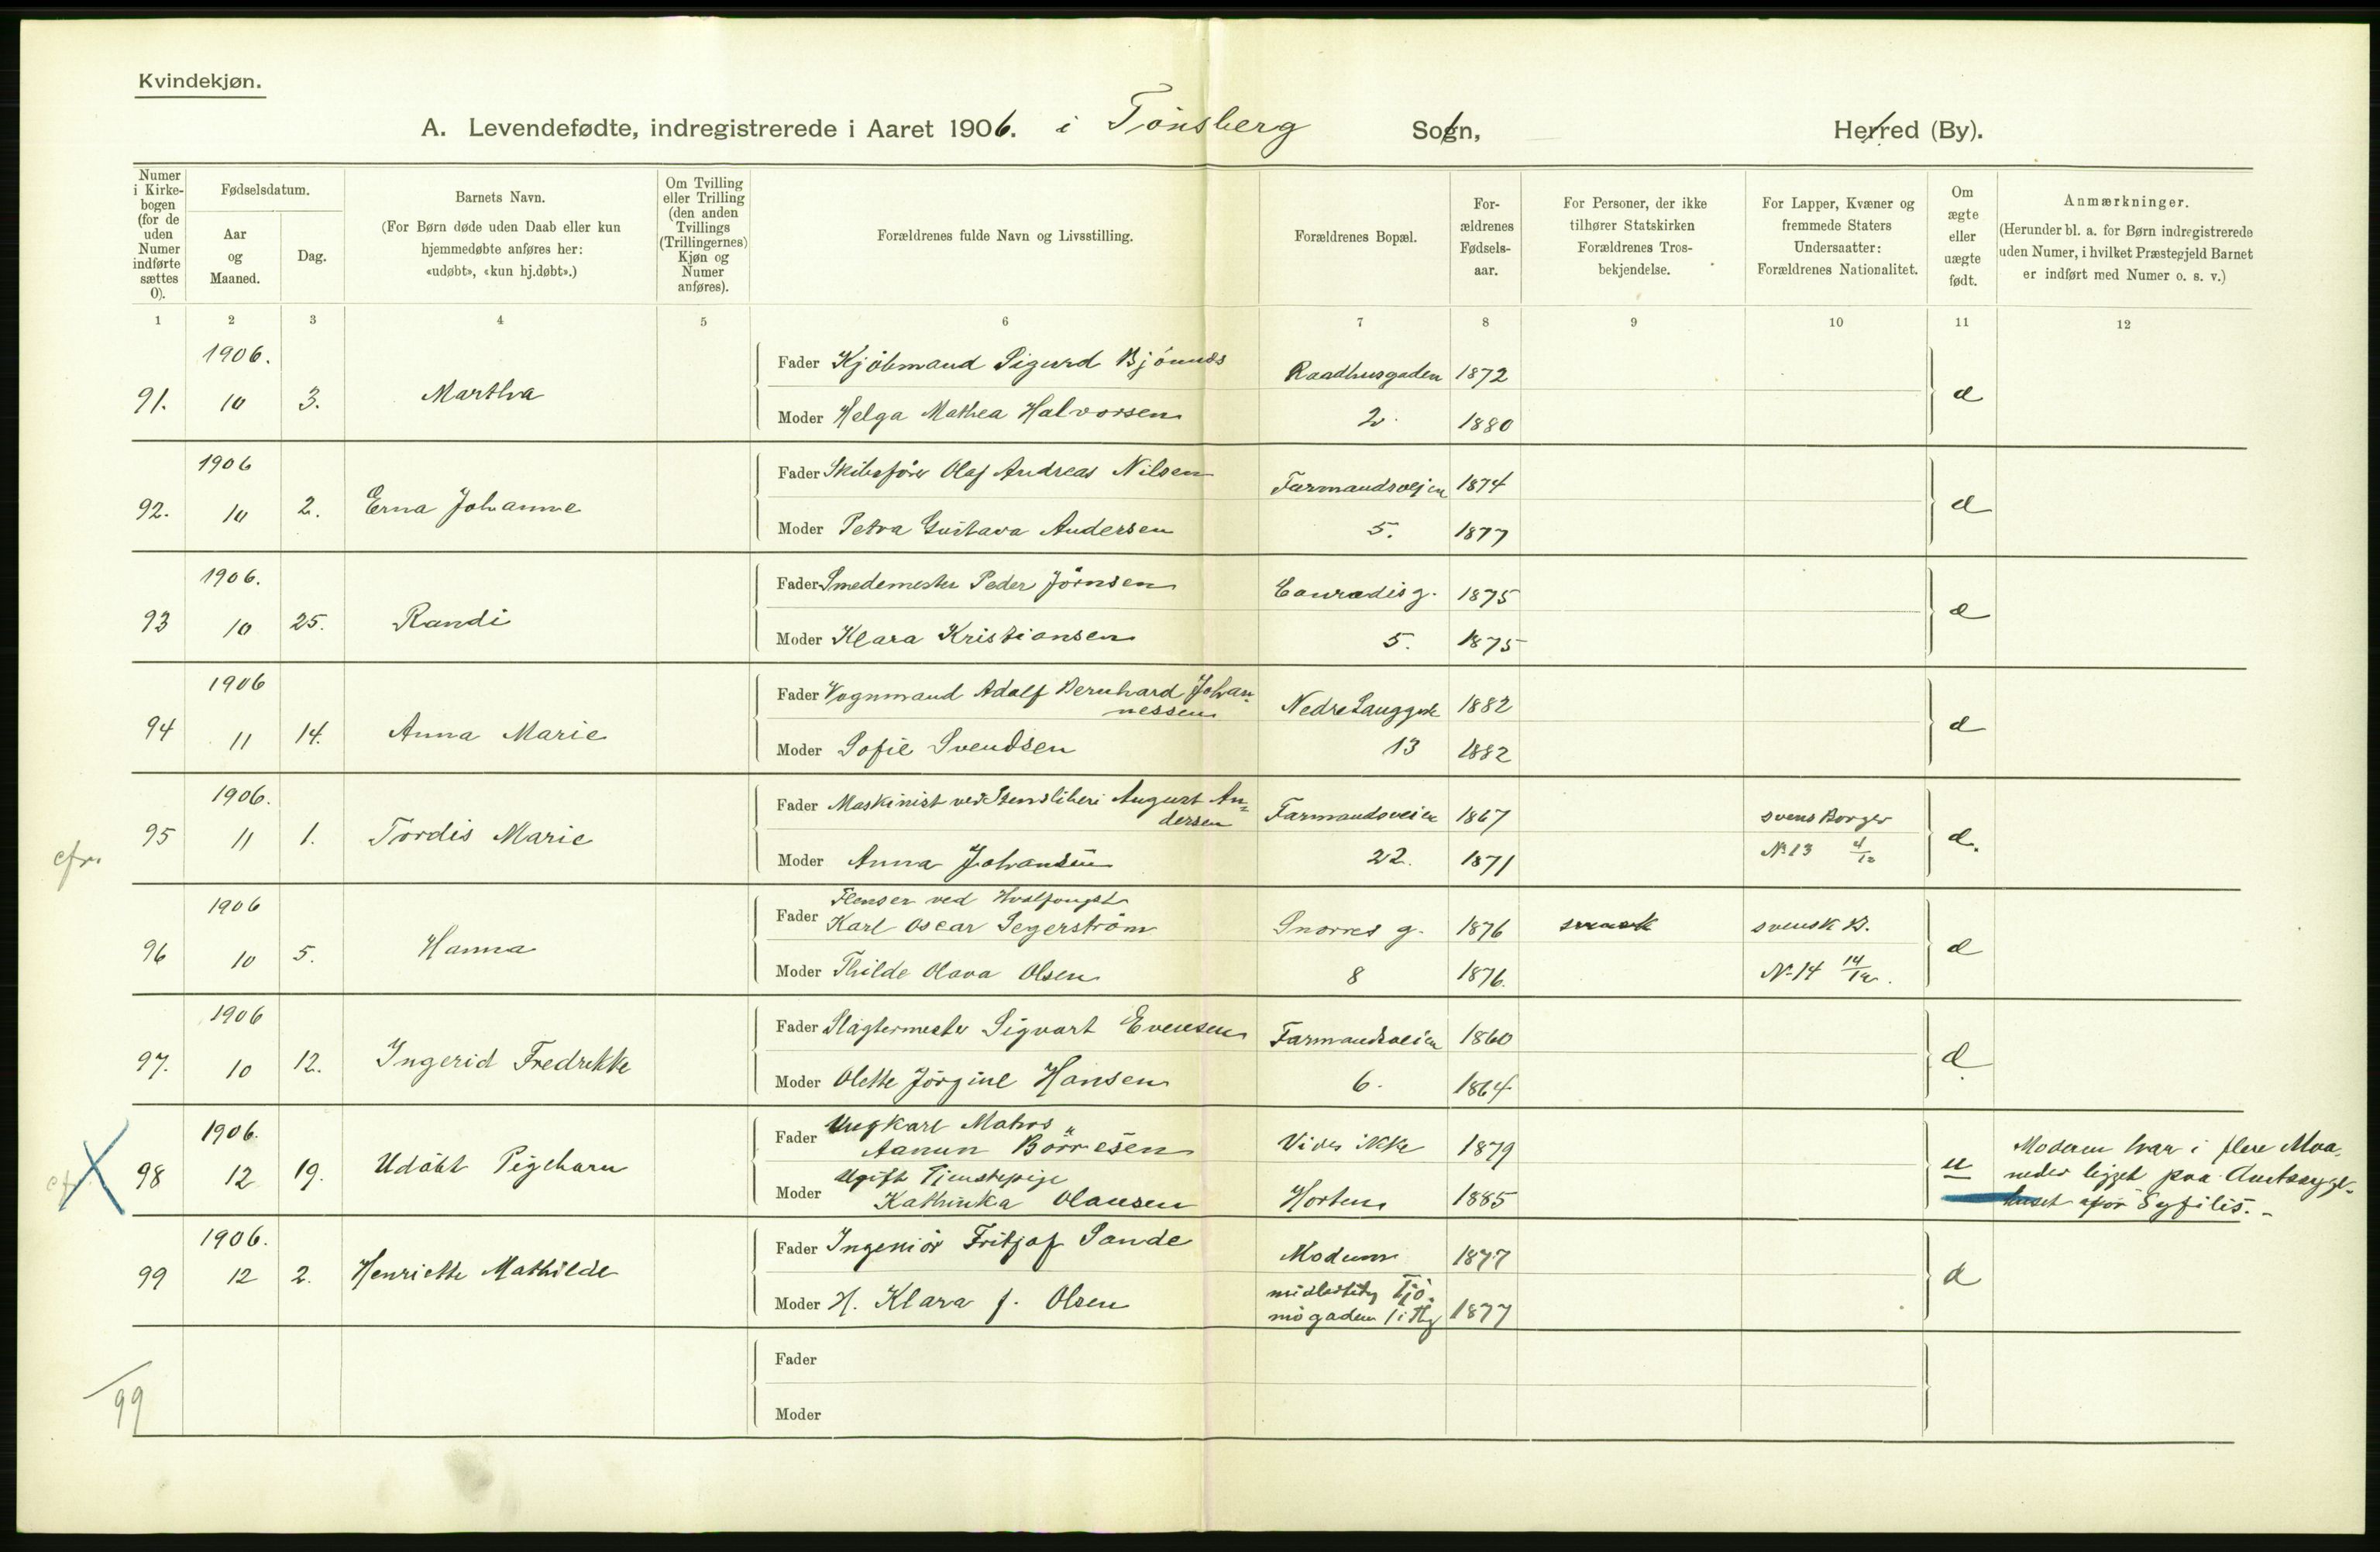 Kvindekjøn.
A. Levendefødte, indregistrerede i Aaret 1906. i Tønsberg Sogn, Herred (By).
Numer i Kirke-bogen (for de uden Numer indførte sættes 0).
Fødselsdatum.
Aar og Maaned.
Dag.
Barnets Navn.
(For Børn døde uden Daab eller kun
hjemmedøbte anføres her:
«udøbt», «kun hj.døbt».)
Om Tvilling eller Trilling (den anden Tvillings (Trillingernes) Kjøn og Numer anføres).
Forældrenes fulde Navn og Livsstilling.
Forældrenes Bopæl.
For-ældrenes Fødsels-aar.
For Personer, der ikke
tilhører Statskirken
Forældrenes Tros-
bekjendelse.
For Lapper, Kvæner og
fremmede Staters
Undersaatter:
Forældrenes Nationalitet.
Om ægte eller uægte født.
Anmærkninger.
(Herunder bl. a. for Børn indregistrerede
uden Numer, i hvilket Præstegjeld Barnet
er indført med Numer o. s. v.)
1 2 3 4 5 6 7 8 9 10 11 12
1906.
Fader Kjøbmand Sigurd Raadhusgaden 1872
91. 10 3. Martha
Moder Helga Mathea Halvorsen 2. 1880
1906
Fader Skibsfører Olaf Andreas Nilsen Farmandsveien 1874
92. 10 2. Erna Johanne
Moder Petra Gustava Andersen 5. 1877
1906.
Fader Smedemester Peder Jörnsen Conradisg. 1875
93 10 25. Randi
Moder Klara Kristiansen 5. 1875
1906
Fader Vognmand Adolf Bernhard Johan-
nessen Nedre Langgade 1882
94 11 14. Anna Marie
Moder Sofie Svendsen 13 1882
1906.
Fader Maskinist ved August An-
dersen Farmandsveien 1867 svensk Borger
cfr. 95 11 1. Tordis Marie d.
Moder Anna Johansen 22. 1871 No 13 4/12
1906
Flenser ved Hvalfangst
Fader Karl Oscar Segerström Snorres g. 1876 svensk svensk B.
96 10 5. Hanna
Moder Thilde Olava Olsen 8 1876. No 14 14/12.
1906
Fader Slagtermester Sigvart Evensen Farmandsveien 1860
97. 10 12. Ingerid Fredrikke
Moder Olette Jörgine Hansen 6. 1864
1906.
Ungkarl Matros
Fader Aanun Börresen Vides ikke 1879
98 12 19. Udøbt Pigebarn u
Ugift Tjenestepige
Moder Kathinka Olausen Horten 1885
Moderen har i flere Maa-
neder ligget paa Amtssyge-
huset for Syfilis.
1906.
Fader Ingeniör Fritjof Sande Modum 1877
99 12 2. Henriette Mathilde
Moder H. Klara f. Olsen midlertidig Tjö-
mögaden 1 i Tbg 1877
Fader
99
Moder